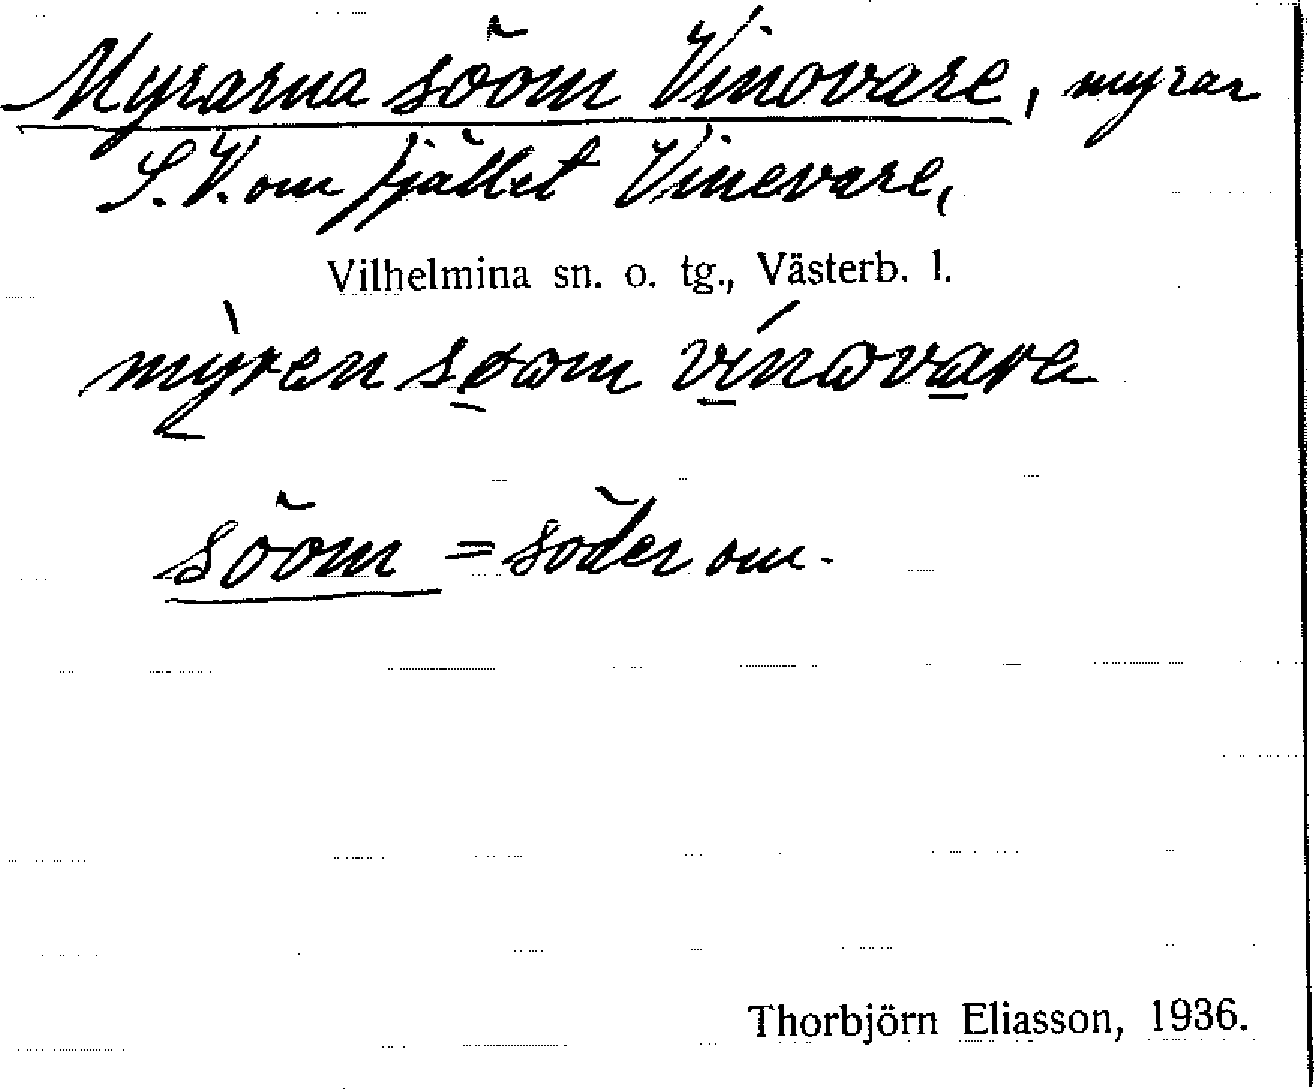 Myrarna sőom Vinovare, myrar
S.V. om fjället Vinevare,
Vilhelmina sn. o. tg., Västerb. l.
sőom = söder om.
Thorbjörn Eliasson, 1936.